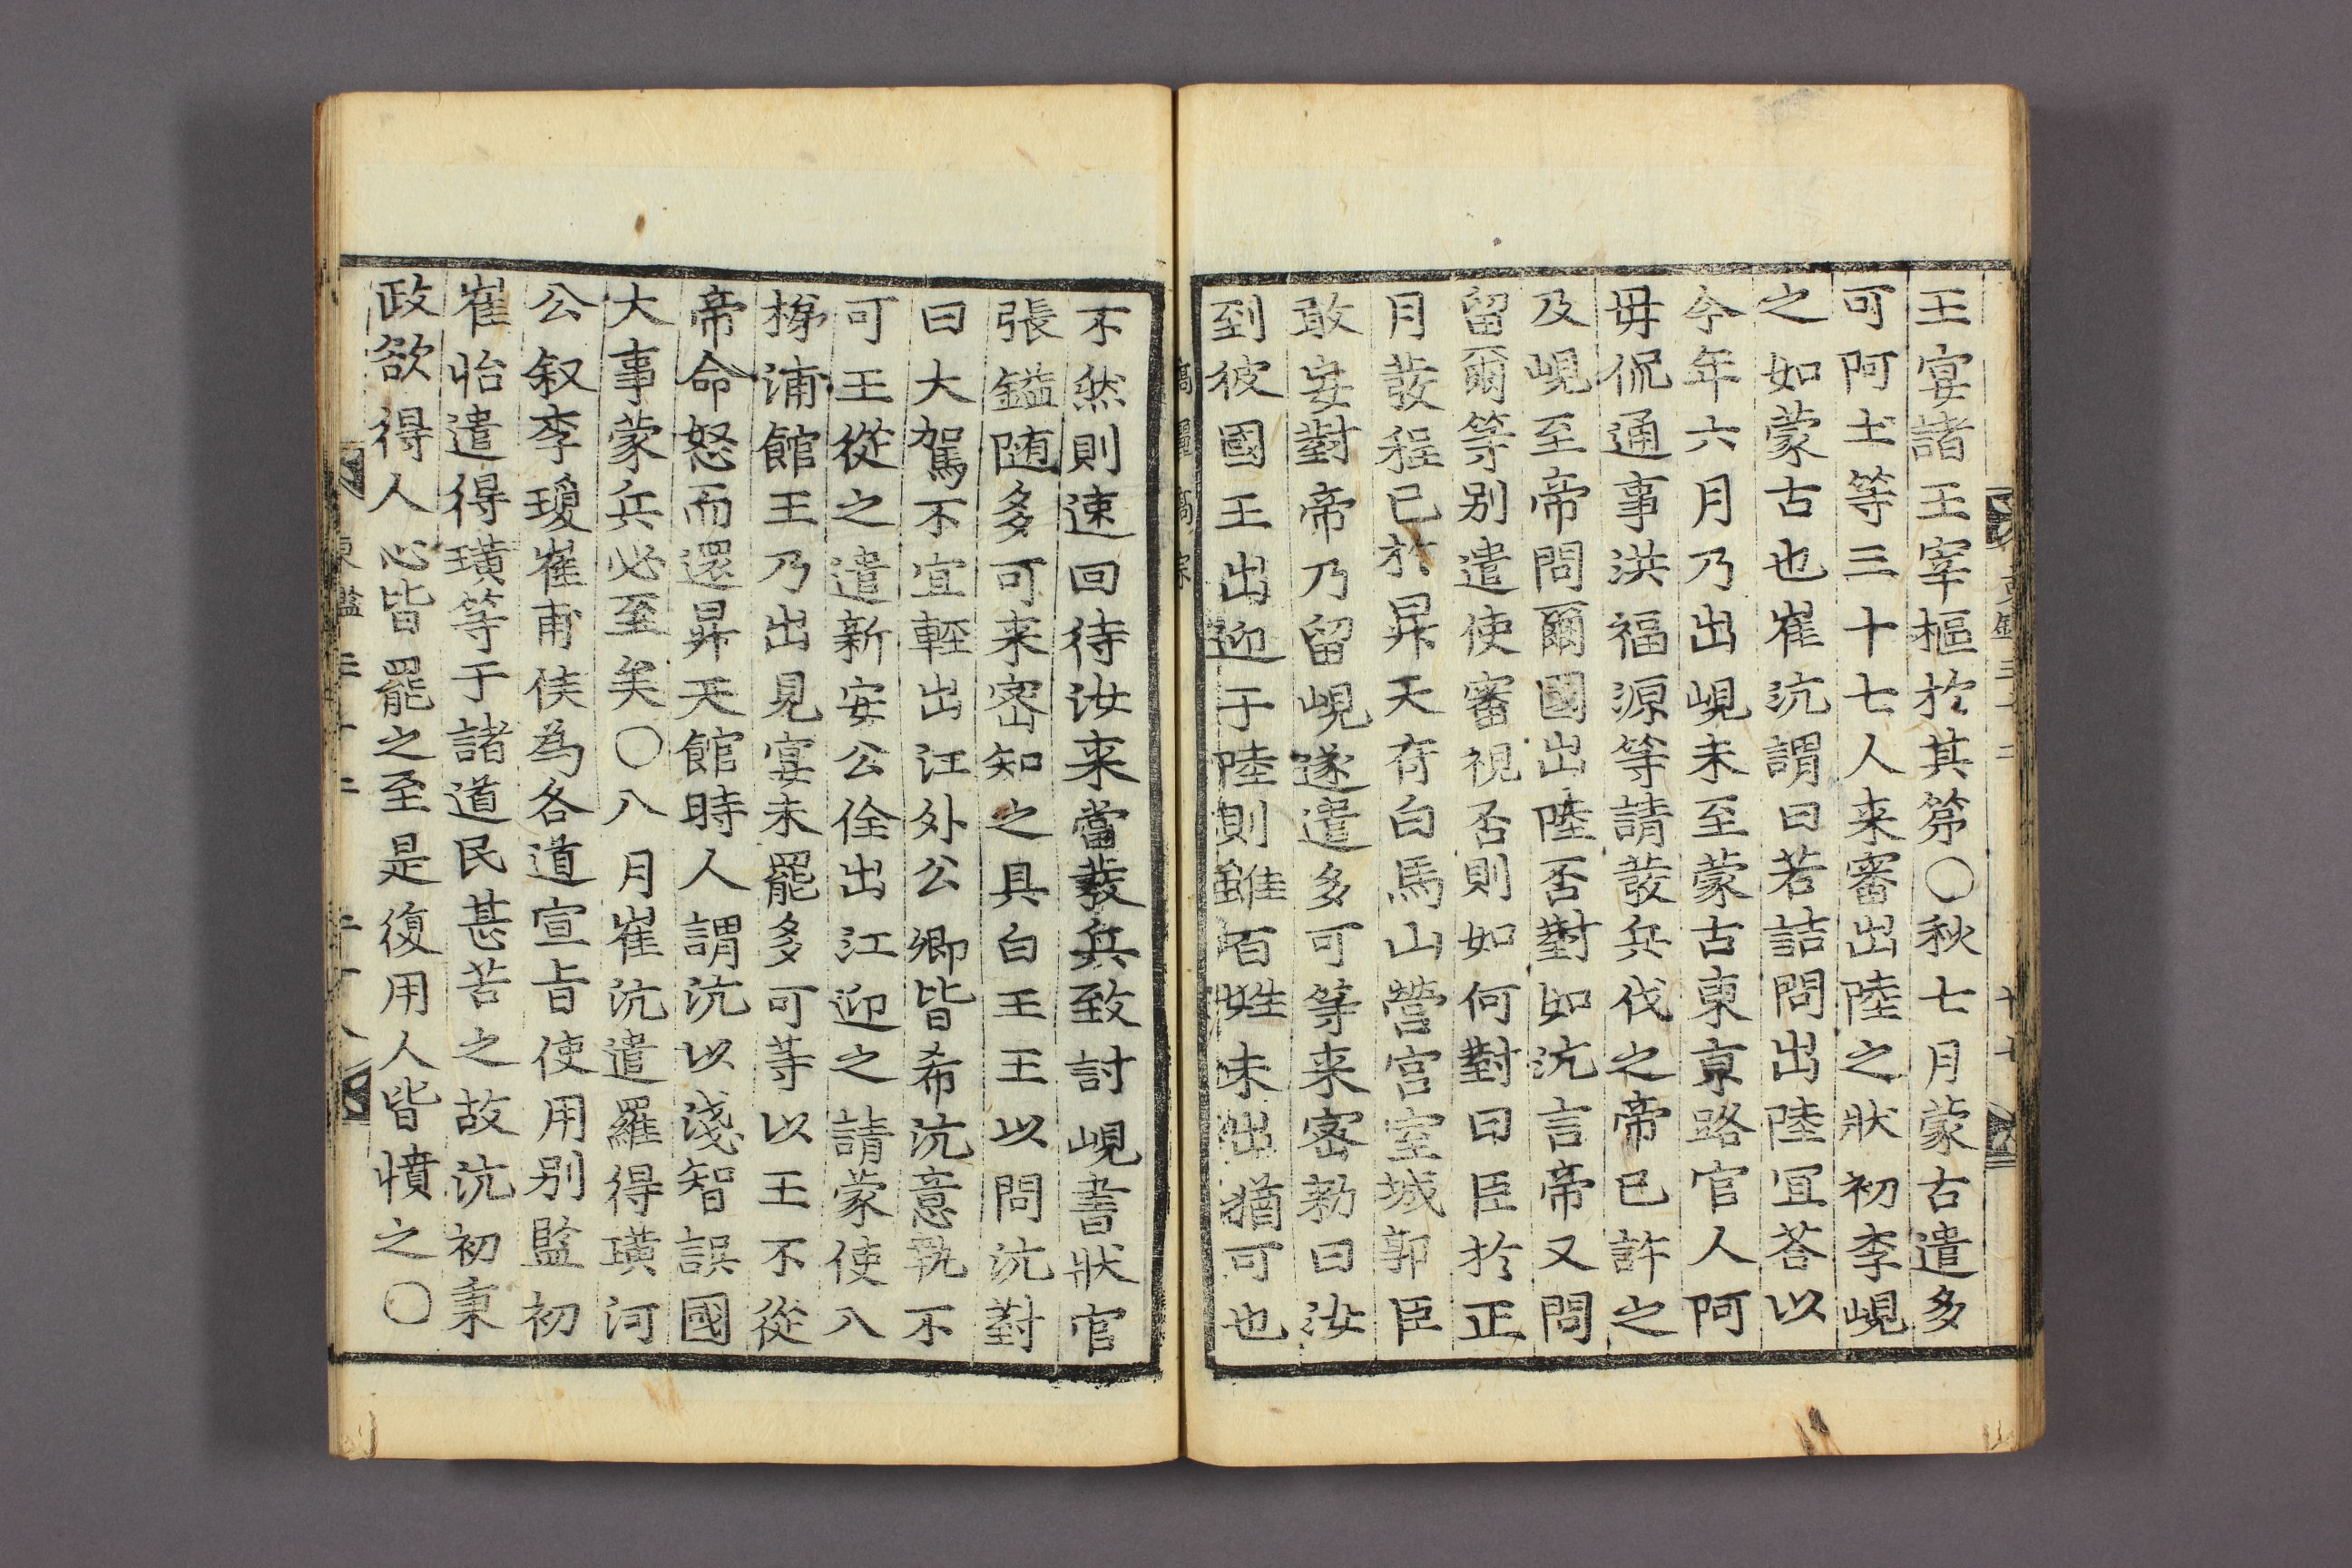 王宴諸王宰樞於其第○秋七月蒙古遣多
可阿土等三十七人来審出陸之狀初李峴
之如蒙古也崔沆謂曰若詰問出陸宜荅以
今年六月乃出峴未至蒙古東亰路官人阿
毋侃通事洪福源等請發兵伐之帝已許之
及峴至帝問爾國出陸否對如沆言帝又問
留爾等别遣使審視否則如何對曰臣於正
月發程已於昇天府白馬山營宫室城郭臣
敢妄對帝乃留峴遂遣多可等来密勑曰汝
到彼國王出迎于陸則雖百姓未出猶可也
不然則速回待汝来當發兵致討峴書狀官
張鎰随多可来密知之具白王王以問沆對
曰大駕不宜輕出江外公卿皆希沆意執不
可王從之遣新安公佺出江迎之請蒙使入
梯浦館王乃出見宴未罷多可等以王不從
帝命怒而還昇天館時人謂沆以淺智誤國
大事蒙兵必至矣○八月崔沆遣羅得璜河
公叙李瓊崔甫侯為各道宣旨使用别監初
崔怡遣得璜等于諸道民甚苦之故沆初秉
政欲得人心皆罷之至是復用人皆憤之○